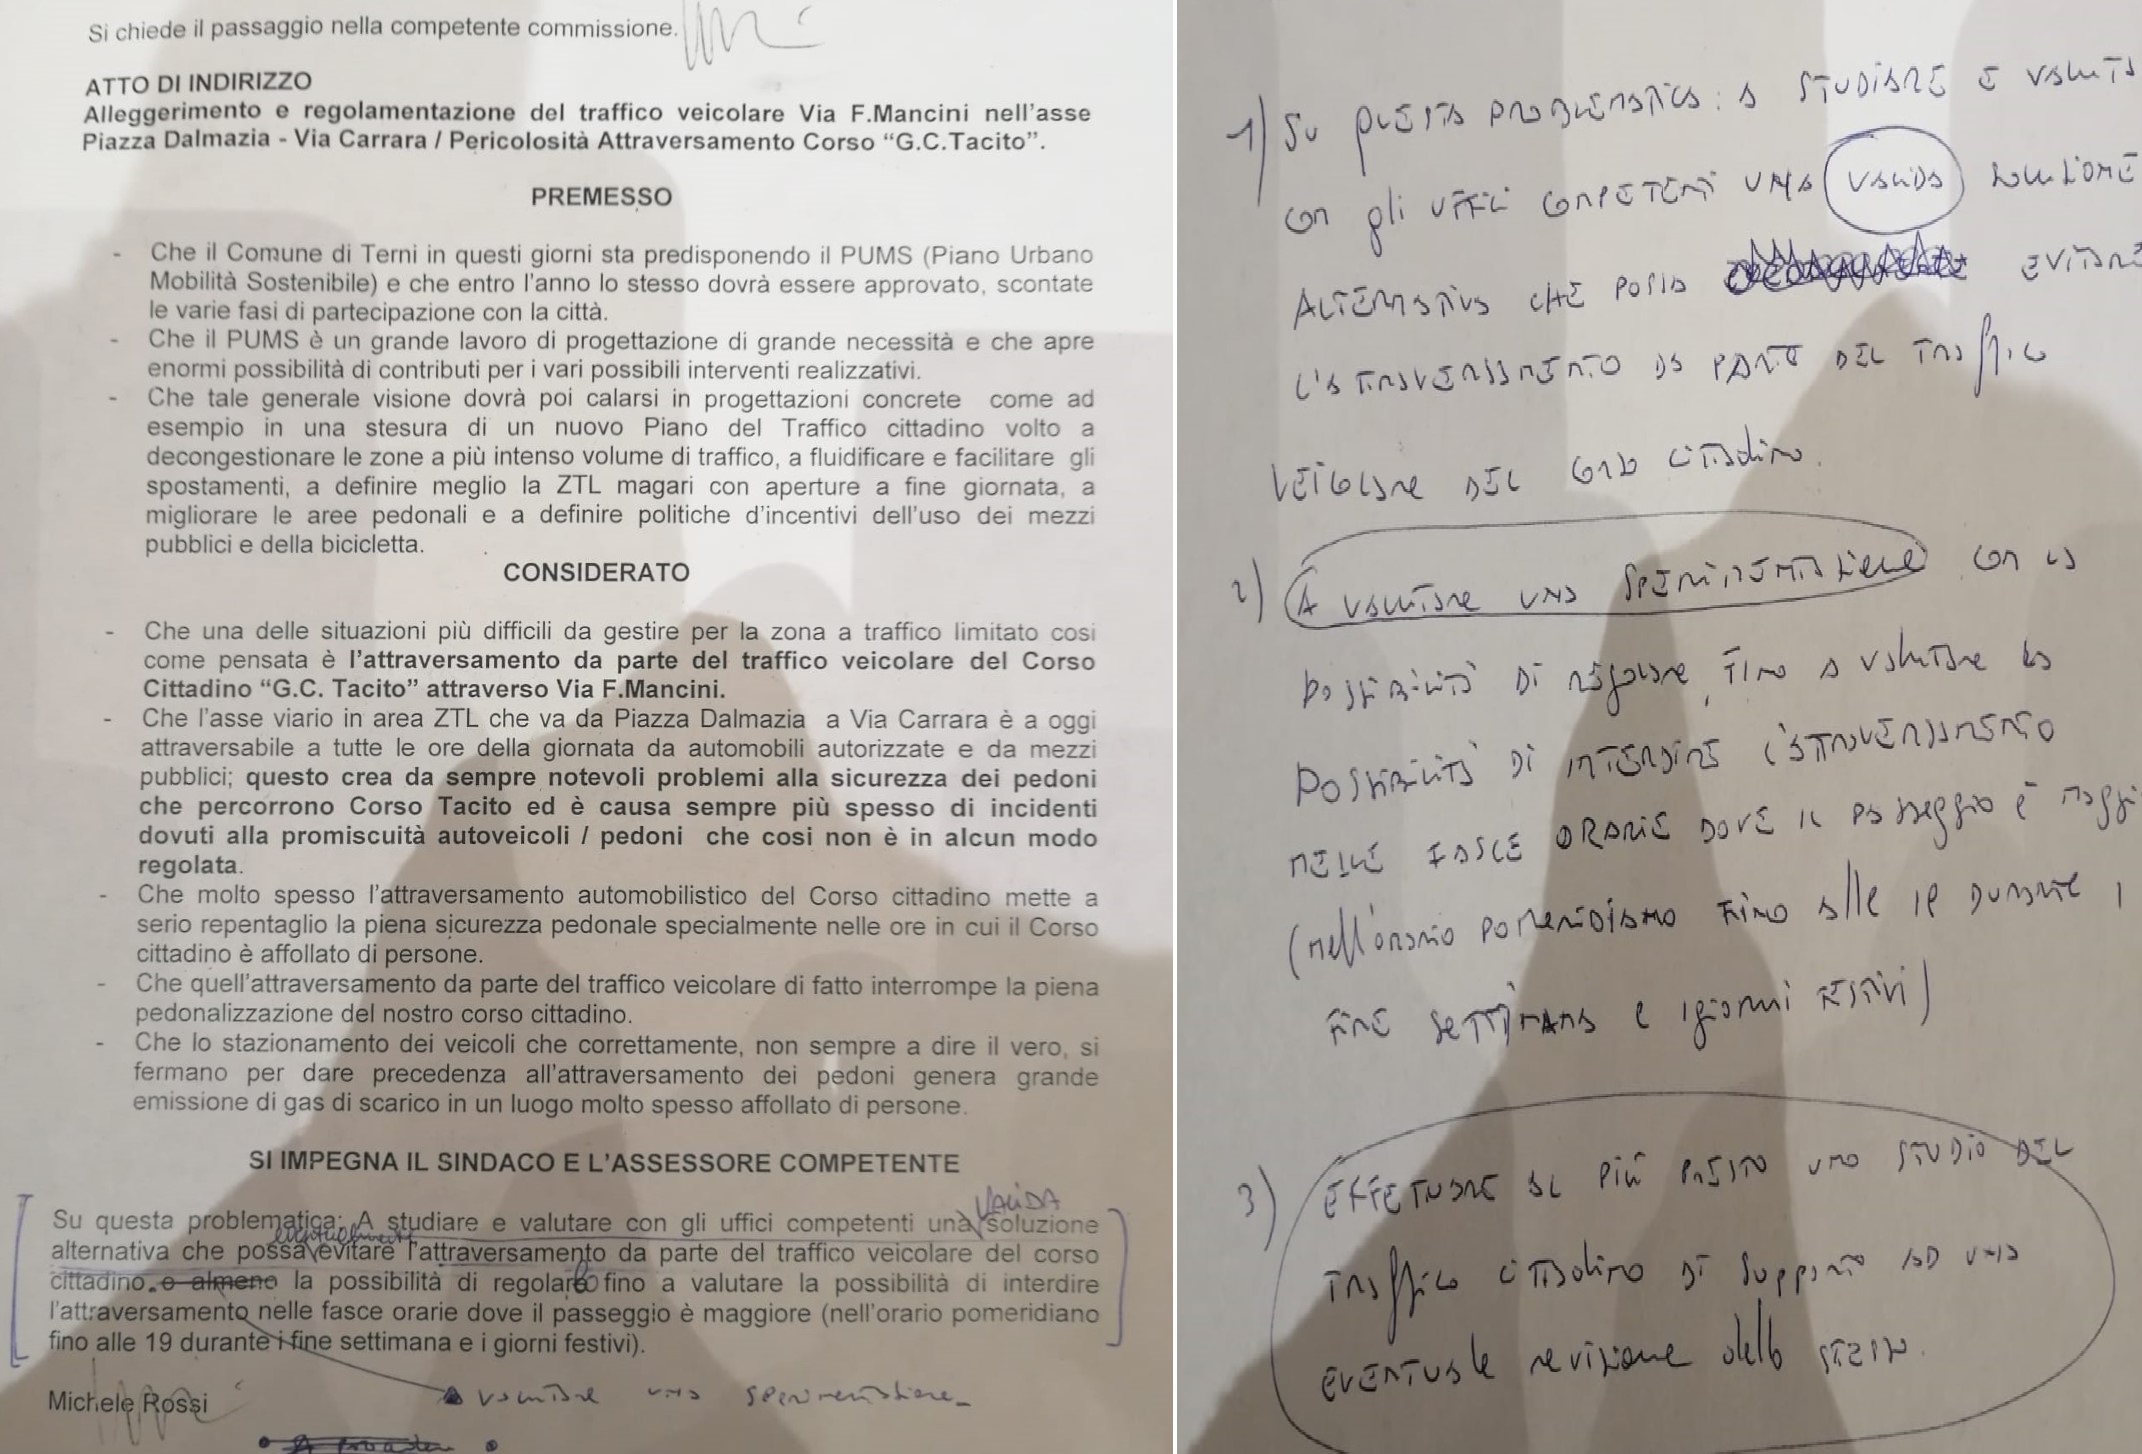 Si chiede il passaggio nella competente commissione.
ATTO DI INDIRIZZO
Alleggerimento e regolamentazione del traffico veicolare Via F.Mancini nell'asse
Piazza Dalmazia - Via Carrara / Pericolosità Attraversamento Corso "G.C.Tacito".
PREMESSO
- Che il Comune di Terni in questi giorni sta predisponendo il PUMS (Piano Urbano
Mobilità Sostenibile) e che entro l'anno lo stesso dovrà essere approvato, scontate
le varie fasi di partecipazione con la città.
- Che il PUMS è un grande lavoro di progettazione di grande necessità e che apre
enormi possibilità di contributi per i vari possibili interventi realizzativi.
- Che tale generale visione dovrà poi calarsi in progettazioni concrete come ad
esempio in una stesura di un nuovo Piano del Traffico cittadino volto a
decongestionare le zone a più intenso volume di traffico, a fluidificare e facilitare gli
spostamenti, a definire meglio la ZTL magari con aperture a fine giornata, a
migliorare le aree pedonali e a definire politiche d'incentivi dell'uso dei mezzi
pubblici e della bicicletta.
CONSIDERATO
- Che una delle situazioni più difficili da gestire per la zona a traffico limitato cosi
come pensata è l'attraversamento da parte del traffico veicolare del Corso
Cittadino "G.C. Tacito" attraverso Via F.Mancini.
- Che l'asse viario in area ZTL che va da Piazza Dalmazia a Via Carrara è a oggi
attraversabile a tutte le ore della giornata da automobili autorizzate e da mezzi
pubblici; questo crea da sempre notevoli problemi alla sicurezza dei pedoni
che percorrono Corso Tacito ed è causa sempre più spesso di incidenti
dovuti alla promiscuità autoveicoli / pedoni che cosi non è in alcun modo
regolata.
- Che molto spesso l'attraversamento automobilistico del Corso cittadino mette a
serio repentaglio la piena sicurezza pedonale specialmente nelle ore in cui il Corso
cittadino è affollato di persone.
- Che quell'attraversamento da parte del traffico veicolare di fatto interrompe la piena
pedonalizzazione del nostro corso cittadino.
- Che lo stazionamento dei veicoli che correttamente, non sempre a dire il vero, si
fermano per dare precedenza all'attraversamento dei pedoni genera grande
emissione di gas di scarico in un luogo molto spesso affollato di persone.
SI IMPEGNA IL SINDACO E L'ASSESSORE COMPETENTE
VALIDA
Su questa problematica: A studiare e valutare con gli uffici competenti una soluzione
eventualmente
alternativa che possa evitare l'attraversamento da parte del traffico veicolare del corso
cittadino. o almeno la possibilità di regolarlo fino a valutare la possibilità di interdire
l'attraversamento nelle fasce orarie dove il passeggio è maggiore (nell'orario pomeridiano
fino alle 19 durante i fine settimana e i giorni festivi).
Michele Rossi
A valutare una sperimentazione
1) Su questa problematica: a studiare e valuta
con gli uffici competenti una valida soluzione
alternativa che possa evitare
l'attraversamento da parte del traffico
veicolare del corso cittadino.
2) A valutare una sperimentazione con la
possibilità di regolare, fino a valutare la
possibilità di interdire l'attraversamento
nelle fasce orarie dove il passeggio è maggi
(nell'orario pomeridiano fino alle 19 durante i
fine settimana e i giorni festivi)
3) Effettuare al più presto uno studio del
traffico cittadino di supporto ad una
eventuale revisione dello stesso.